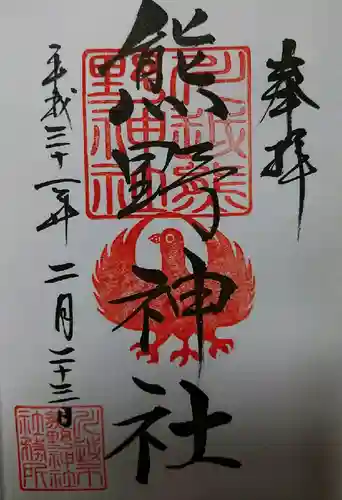 奉拝
熊野神社
平成三十一年二月二十三日
川越熊野神社
川越市熊野神社社務所